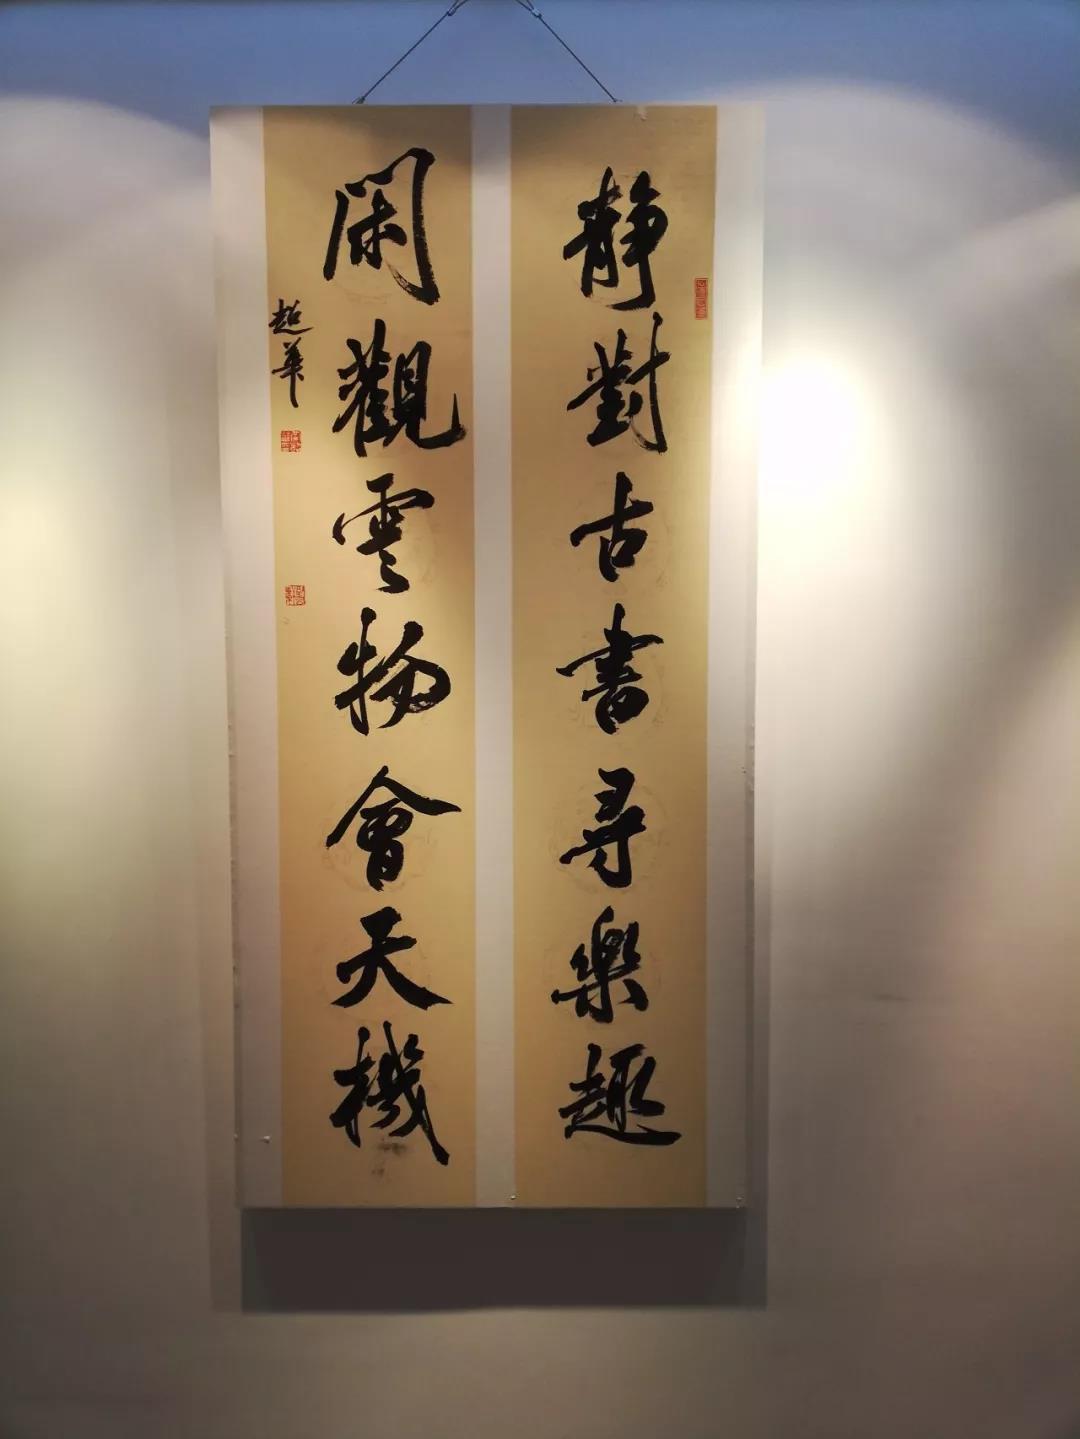 静對古書尋樂趣
閑觀雲物會天機
超華